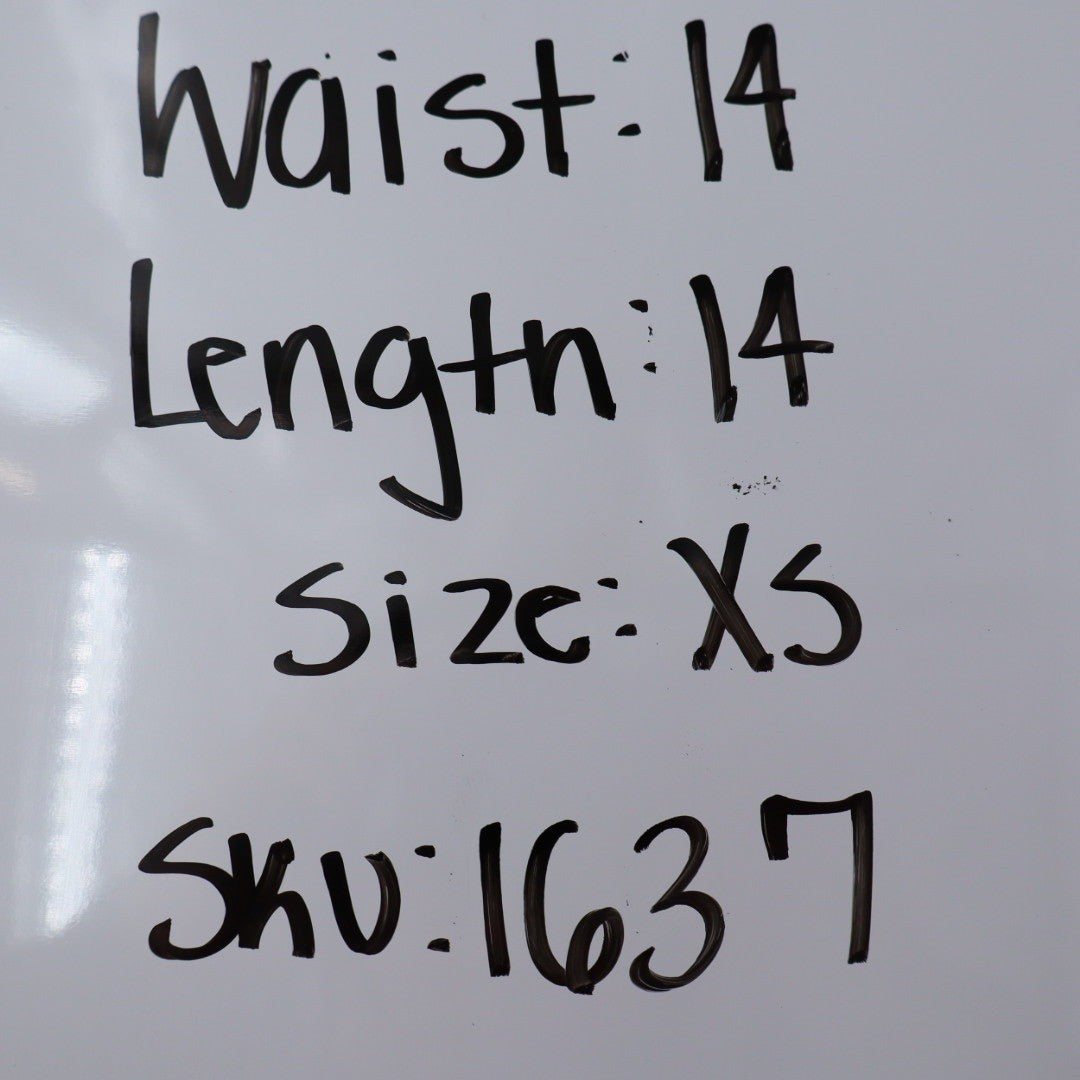 Waist: 14
Length: 14
Size: XS
Sku: 1637